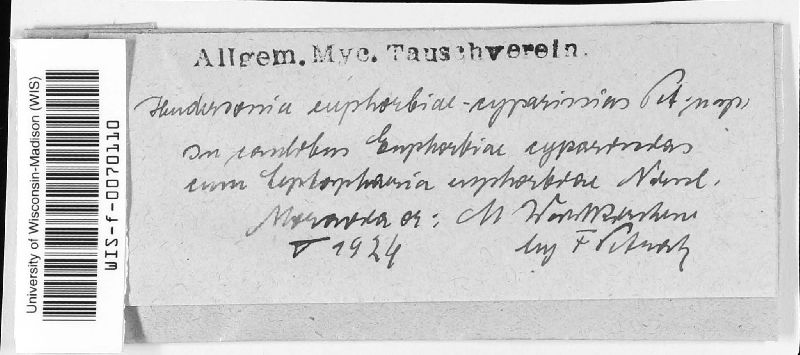 University of Wisconsin-Madison (WIS)
WIS-f-0070110
Allgem. Myc. Tauschverein.
Hendersonia euphorbiae-cyparissias Pet. n. sp.
In caulibus Euphorbiae cyparissias
cum Leptosphaeria euphorbiae Niessl.
Moravia or: M Weißkirchen
V 1924 leg F Petrak